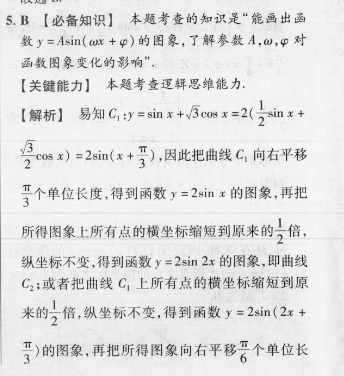 5. B 【必备知识】 本题考查的知识是“能画出函
数 y = Asin(ωx + φ) 的图象,了解参数 A,ω,φ 对
函数图象变化的影响”.
【关键能力】 本题考查逻辑思维能力.
【解析】 易知 C₁:y = sin x + √3cos x = 2(1/2 sin x +
√3/2 cos x) = 2sin(x + π/3),因此把曲线 C₁ 向右平移
π/3个单位长度,得到函数 y = 2sin x 的图象,再把
所得图象上所有点的横坐标缩短到原来的1/2倍,
纵坐标不变,得到函数 y = 2sin 2x 的图象,即曲线
C₂;或者把曲线 C₁ 上所有点的横坐标缩短到原
来的1/2倍,纵坐标不变,得到函数 y = 2sin(2x +
π/3)的图象,再把所得图象向右平移π/6个单位长